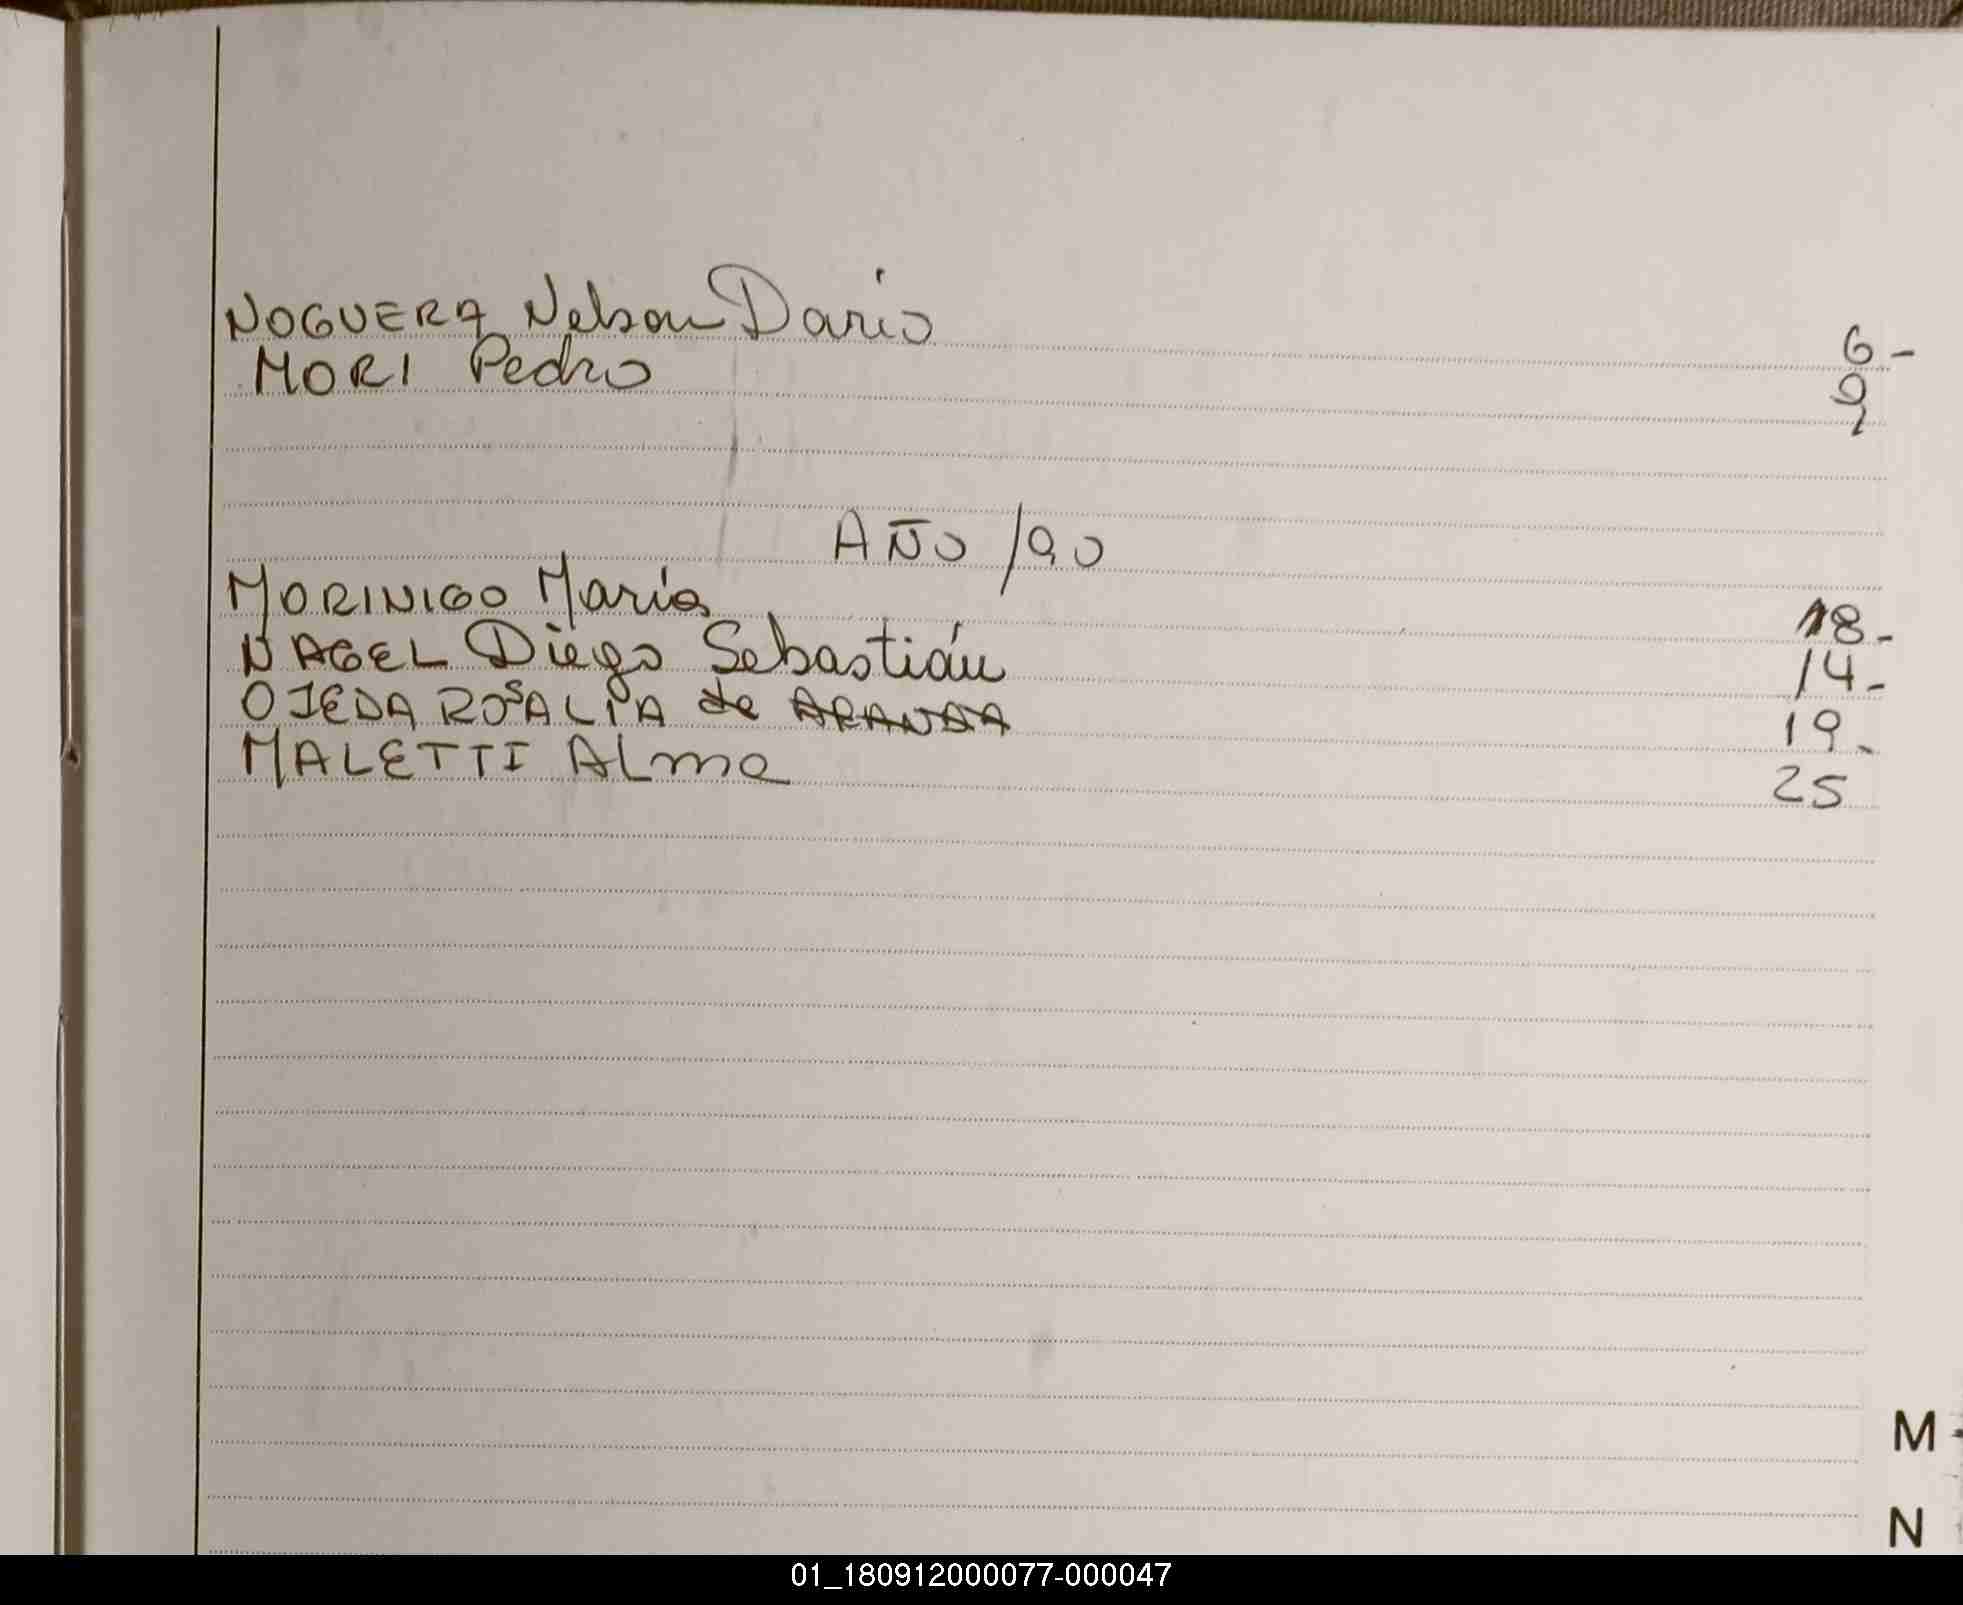 NOGUERA Nelson Darío 6-
MORI Pedro 9
AÑO /90
MORINIGO María 18-
NAGEL Diego Sebastián 14-
OJEDA ROSALIA de ARANDA 19-
MALETTI Alma 25
M
N
01_180912000077-000047